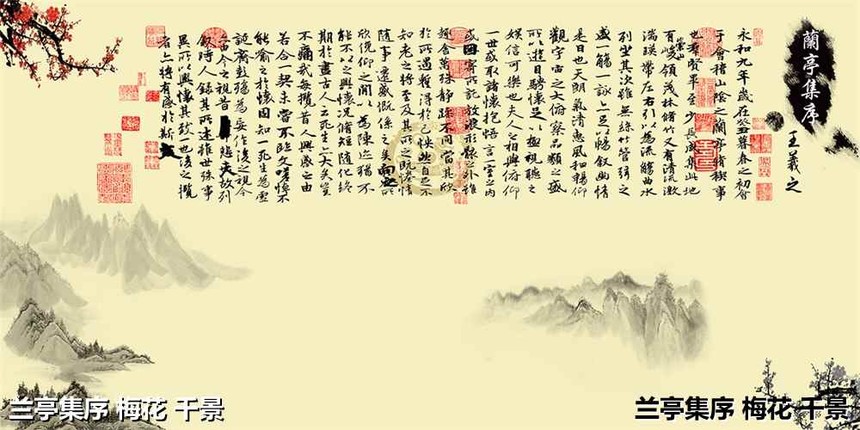 蘭亭集序
王羲之
永和九年歲在癸丑暮春之初會
于會稽山陰之蘭亭脩稧事
也群賢畢至少長咸集此地
有崇山峻領茂林脩竹又有清流激
湍暎帶左右引以為流觴曲水
列坐其次雖無絲竹管弦之
盛一觴一詠亦足以暢敘幽情
是日也天朗氣清惠風和暢仰
觀宇宙之大俯察品類之盛
所以遊目騁懷足以極視聽之
娛信可樂也夫人之相與俯仰
一世或取諸懷抱悟言一室之內
或因寄所託放浪形骸之外雖
趣舍萬殊靜躁不同當其欣
於所遇蹔得於己怏然自足不
知老之將至及其所之既惓情
隨事遷感慨係之矣向之所
欣俛仰之間以為陳迹猶不
能不以之興懷況脩短隨化終
期於盡古人云死生亦大矣豈
不痛哉每攬昔人興感之由
若合一契未嘗不臨文嗟悼不
能喻之於懷固知一死生為虛
誕齊彭殤為妄作後之視今
亦由今之視昔悲夫故列
敘時人錄其所述雖世殊事
異所以興懷其致一也後之攬
者亦將有感於斯
兰亭集序 梅花 千景
兰亭集序 梅花 千景